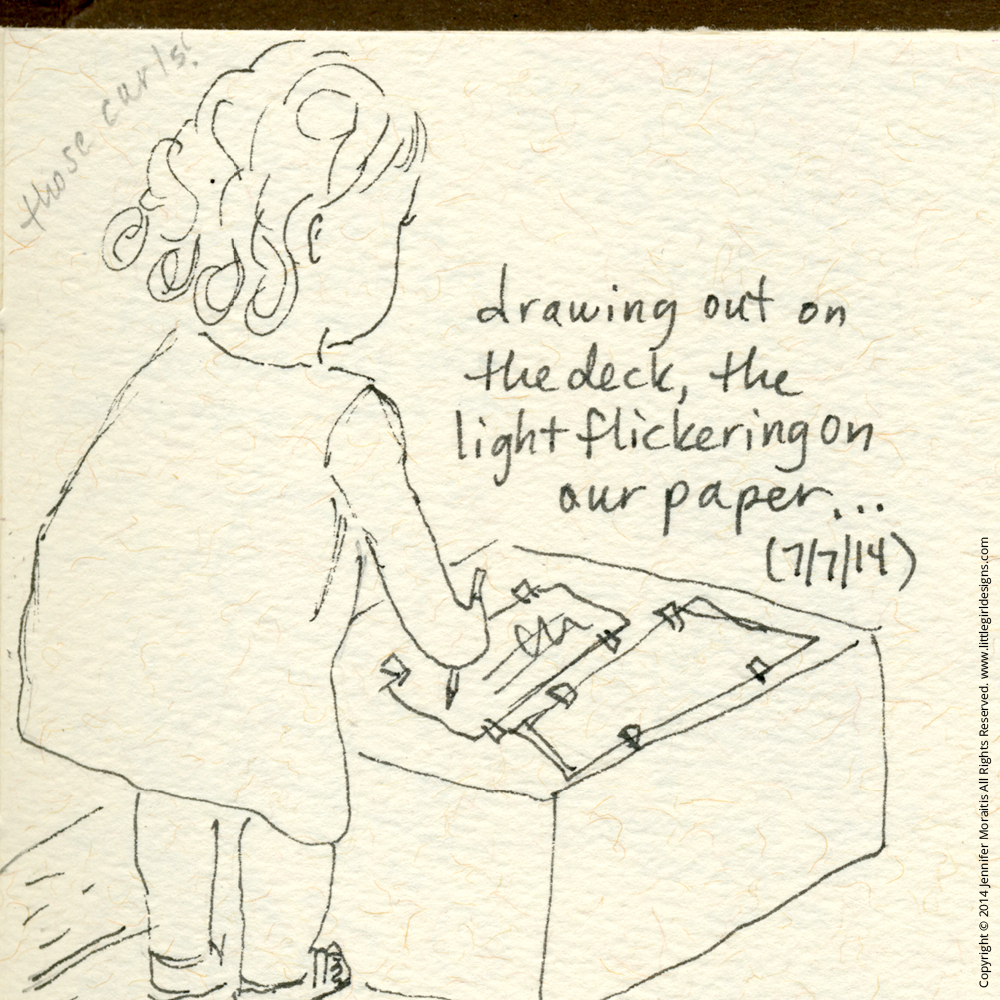 those curls!
drawing out on
the deck, the
light flickering on
our paper...
(7/7/14)
Copyright © 2014 Jennifer Moraitis All Rights Reserved. www.littlegirldesigns.com